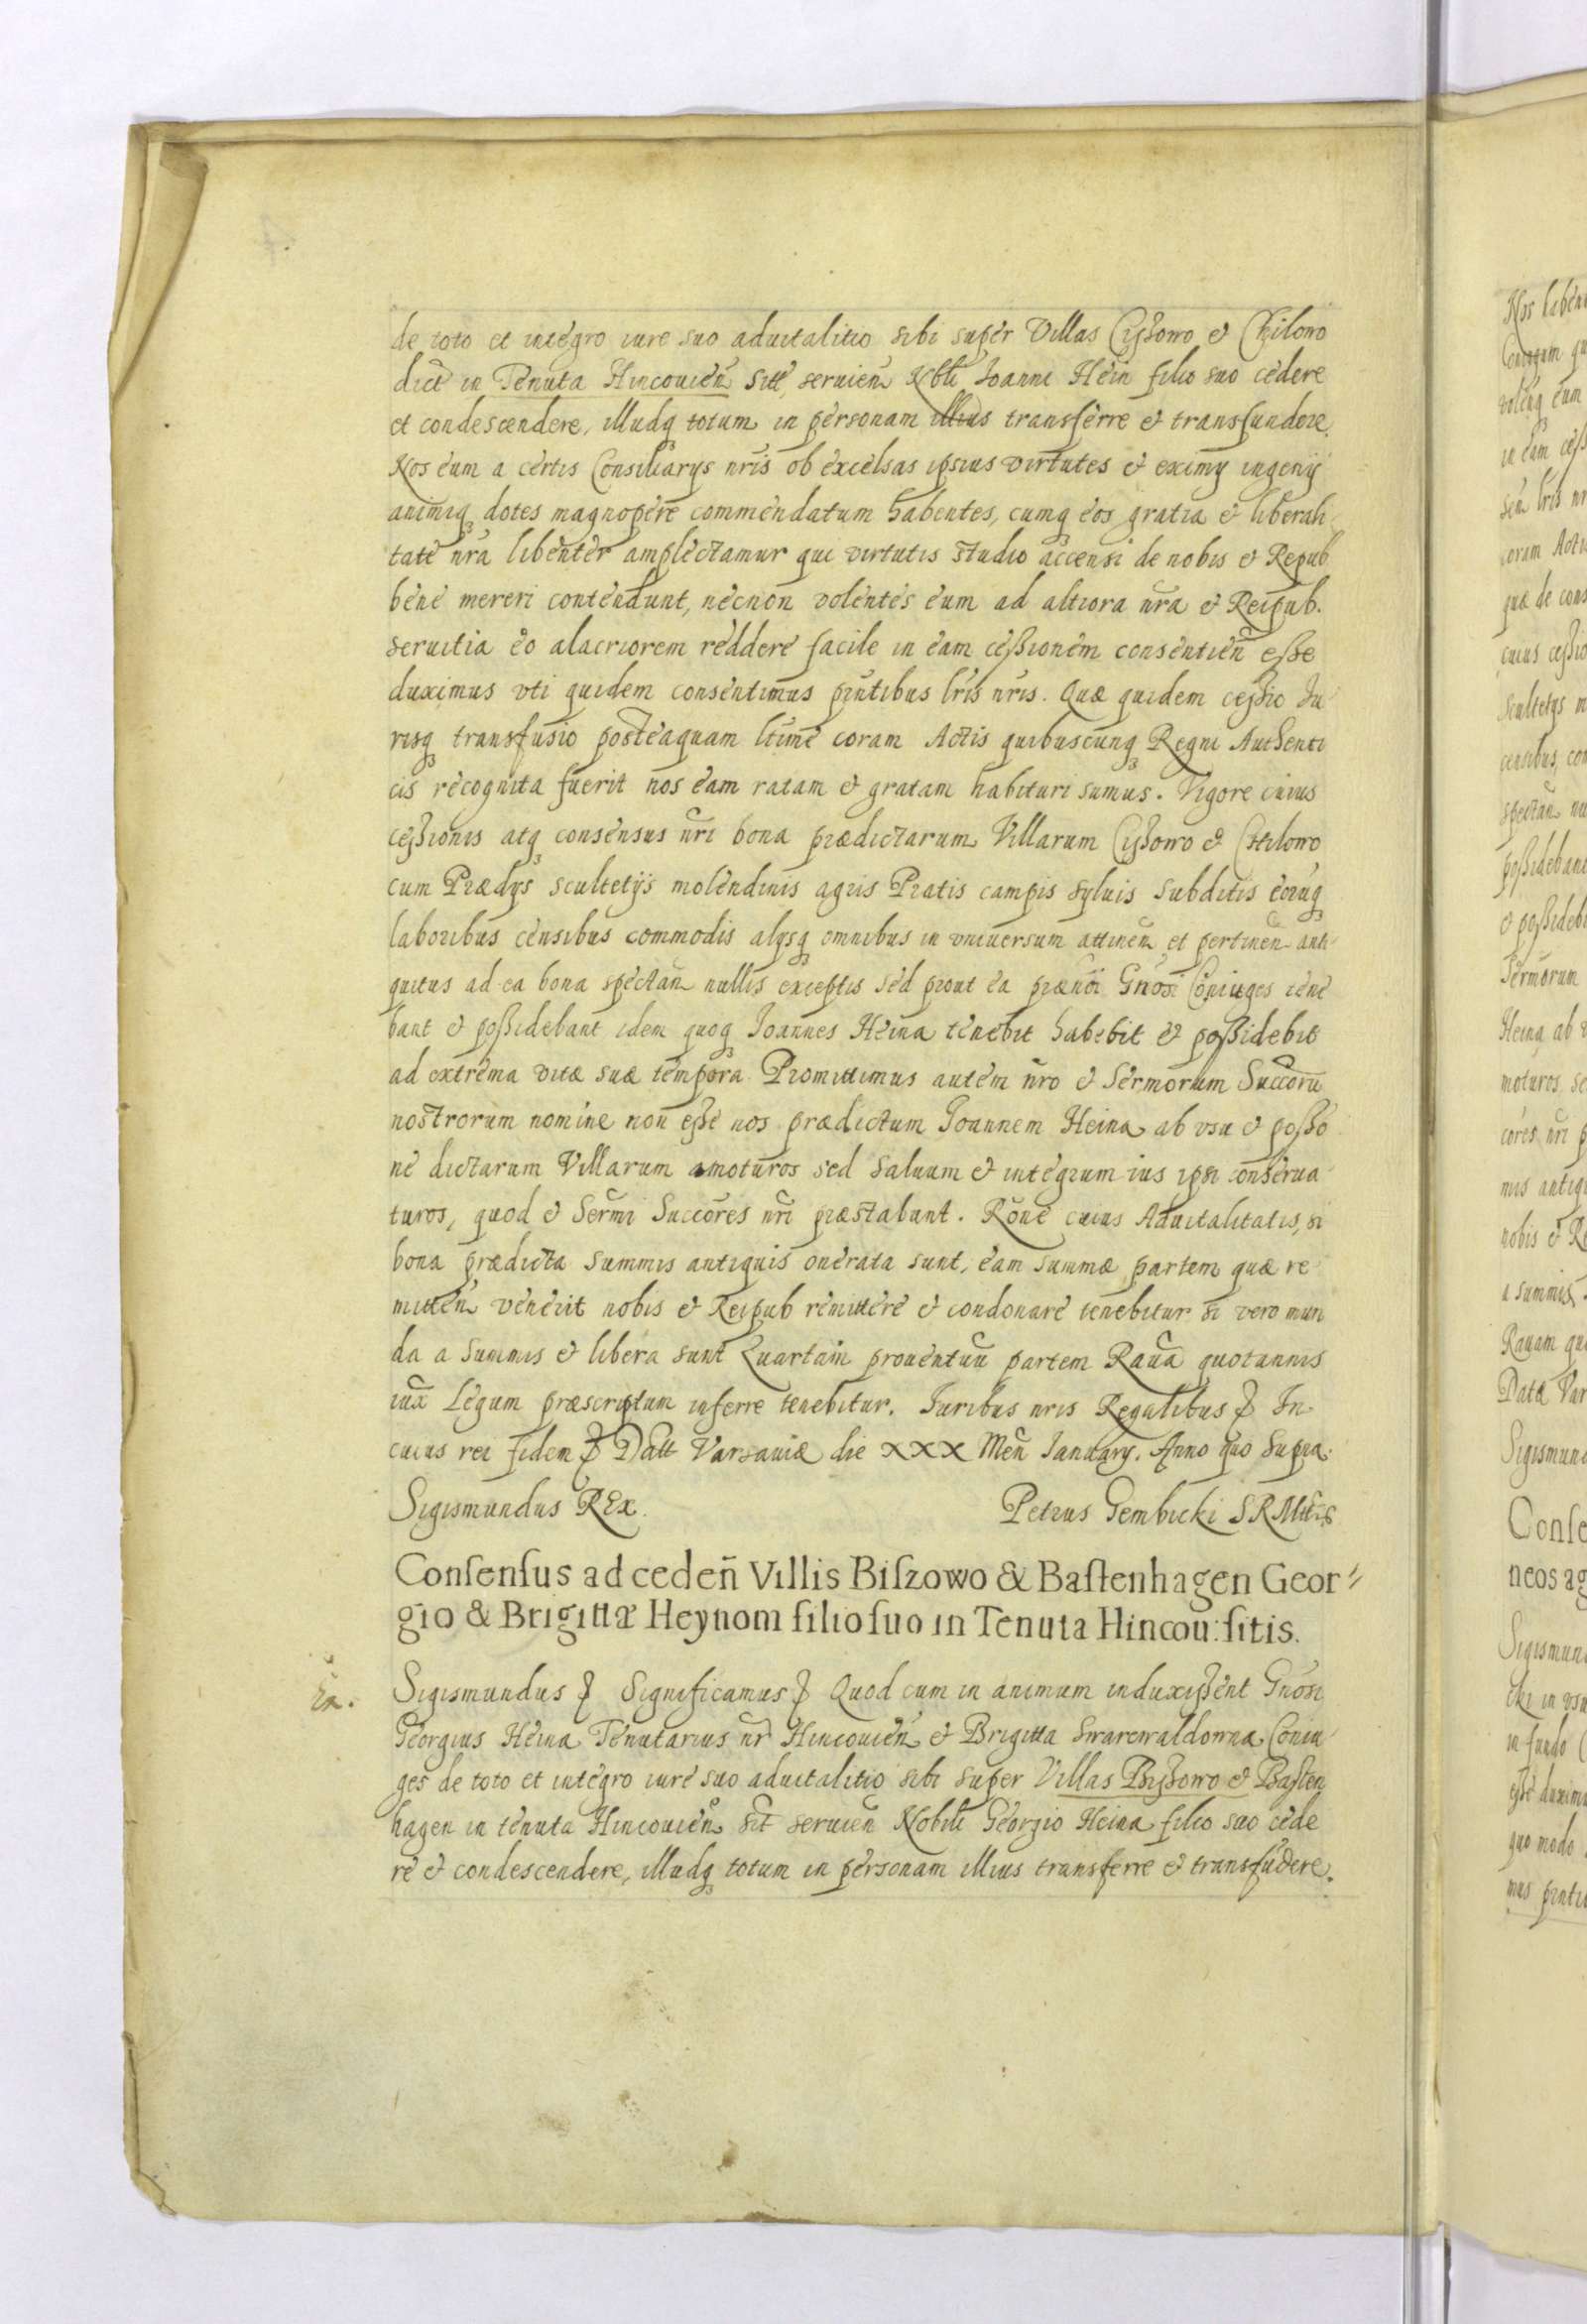 de toto et integro iure suo aduitalitio sibi super Villas Ciszowo & Chilowo
dict in Tenuta Hincouien̄ sitt, seruien̄ Nbli Joanni Hein filio suo cedere
et condescendere, illudq totum in personam illius transferre & transfundere.
Nos eum a certis Consiliarijs nr̄is ob excelsas ipsius virtutes & eximij ingenij
animiq dotes magnopere commendatum habentes, cumq eos gratia & liberali
tate nr̄a libenter amplectamur qui virtutis studio accensi de nobis & Repub
bene mereri contendunt, necnon volentes eum ad altiora nr̄a & Reipub.
seruitia eo alacriorem reddere facile in eam ceßionem consentien̄ eße
duximus vti quidem consentimus pn̄tibus lr̄is nr̄is. Quæ quidem ceßio Ju
risq transfusio posteaquam ltime coram Actis quibuscunq Regni Authenti
cis recognita fuerit nos eam ratam & gratam habituri sumus. Vigore cuius
ceßionis atq consensus nr̄i bona prædictarum Villarum Ciszowo & Chilowo
cum Prædijs scultetijs molendinis agris Pratis campis syluis subditis eorūq
laboribus censibus commodis alijsq omnibus in vniuersum attinen̄ et pertinen̄ anti
quitus ad ea bona spectan̄ nullis exceptis sed prout ea prænoī Gnosi Coniuges tene
bant & poßidebant idem quoq Joannes Heina tenebit habebit & poßidebit
ad extrema vitæ suæ tempora Promittimus autem nr̄o & Sermorum Succorū
nostrorum nomine non eße nos prædictum Joannem Heina ab vsu & poßo
ne dictarum Villarum amoturos sed saluum & integrum ius ipsi conserua
turos, quod & Sermi Succores nr̄i præstabunt. Rōne cuius Aduitalitatis, si
bona prædicta summis antiquis onerata sunt, eam summæ partem quæ re
mitten̄ venerit nobis & Reipub remittere & condonare tenebitur si vero mun
da a summis & libera sunt Quartam prouentuū partem Rauā quotannis
iux̄ Legum præscriptum inferre tenebitur. Juribus nris Regalibus ꝛ Jn
cuius rei fidem ꝛ Datt Varsauiæ die XXX Men̄ Januarij. Anno quo supra.
Sigismundus REx. Petrus Gembicki SRMttis
Conſenſus ad ceden̄ Villis Biſzowo & Baſtenhagen Geor⸗
gio & Brigittæ Heynom filio ſuo in Tenuta Hincou: ſitis.
Ex.
Sigismundus ꝛ Significamus ꝛ Quod cum in animum induxißent Gnosi
Georgius Heina Tenutarius nr̄ Hincouien̄ & Brigitta Swarcwaldowna Coniu
ges de toto et integro iure suo aduitalitio sibi super Villas Biszowo & Basten
hagen in tenuta Hincouien̄ sit̄ seruien̄ Nobili Georgio Heina filio suo cede
re & condescendere, illudq totum in personam illius transferre & transfūdere.